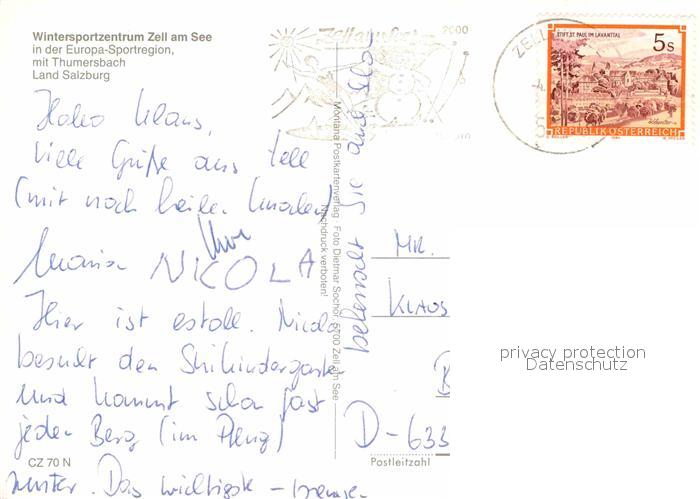 Wintersportzentrum Zell am See
in der Europa-Sportregion,
mit Thumersbach
Land Salzburg
Hallo Klaus,
viele Grüße aus Zell
(mit noch heilen Knochen)
Maria NICOLA
Hier ist es toll. Nicola
besucht den Skikindergarten
und kommt schon fast
jeden Berg (im Pflug)
runter. Das wichtigste -
CZ 70 N
Montana Postkartenverlag Foto Dietmar Sochor, 5700 Zell am See
Nachdruck verboten!
beherrscht sie auch
Zell am See
ZELL
STIFT ST. PAUL IM LAVANTTAL
5 S
REPUBLIK ÖSTERREICH
MR.
KLAUS
D-633
Postleitzahl
privacy protection
Datenschutz